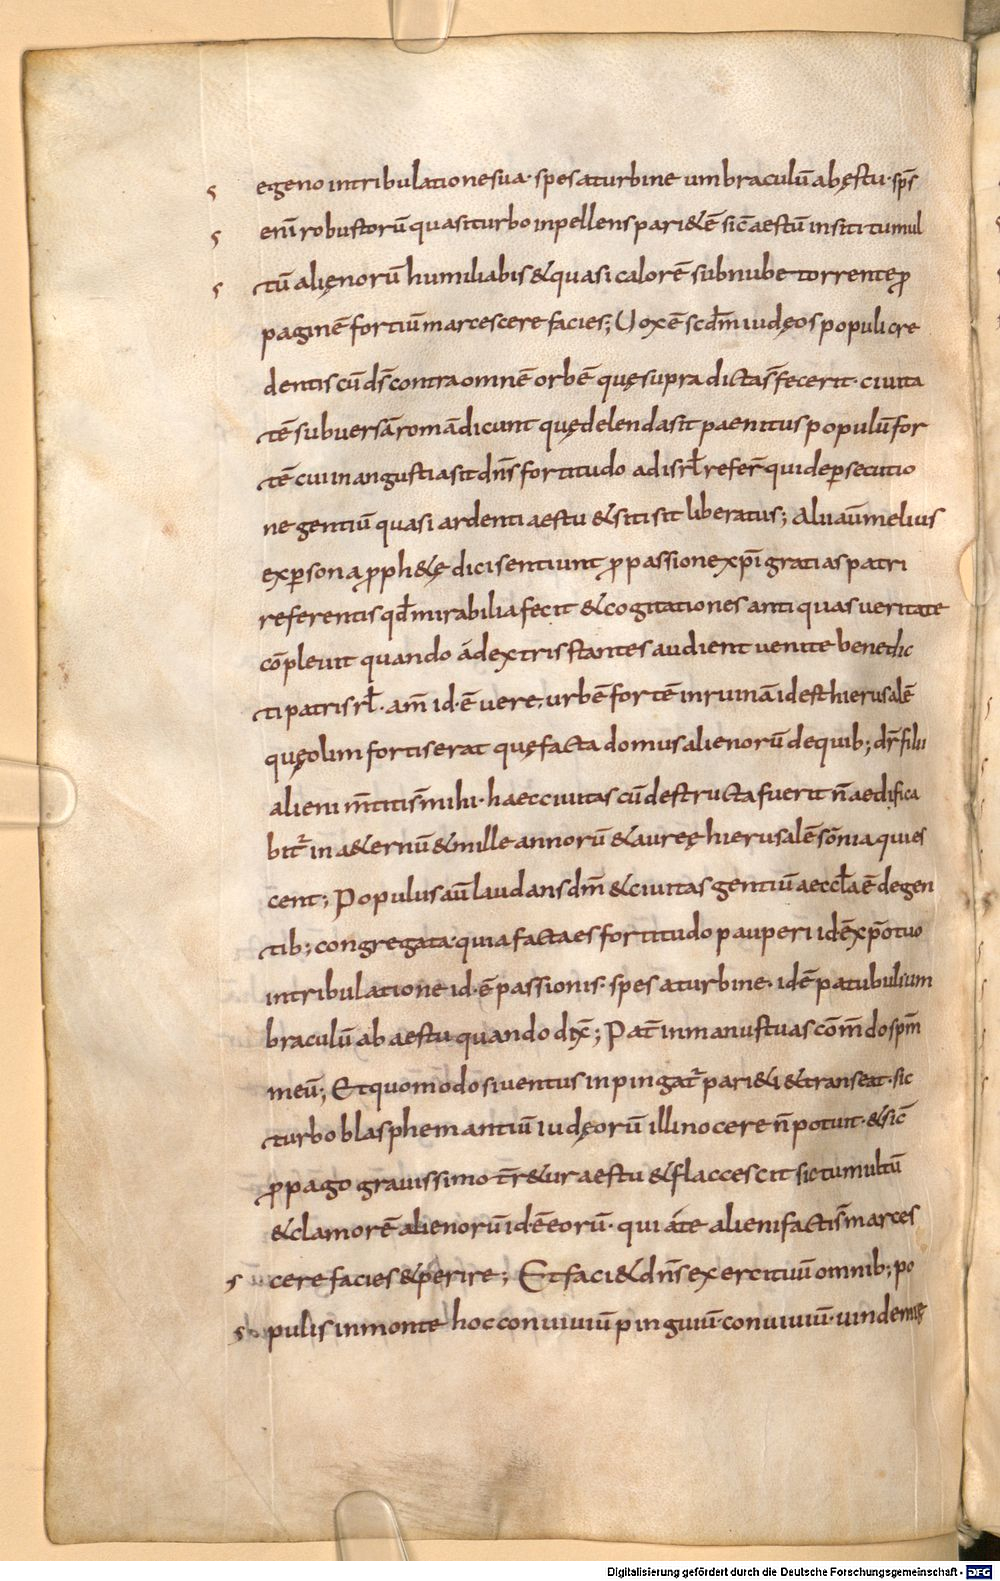 egeno intribulationesua· spes aturbine umbraculū abęstu· sp̄s
eni᷒ robustorū quasiturbo inpellens pari&ē sic̄ aestū insiti tumul
tū alięnorū humiliabis & quasi calorē subnube torrente ꝓ
paginē fortiū marcescere facies; Uox ē scdm̄ iudęos populi cre
dentis cū ds̄ contra omnē orbē quę supra dicta s̄ fecerit· ciuita
tē subuersā romā dicunt quę delenda sit paenitus populū for
tē cui in angustia sit dn̄s fortitudo ad isrl̄ refer̄ qui de ꝑsecutio
ne gentiū quasi ardenti aestu & siti sit liberatus; Alii aū melius
ex ꝑsona ꝓph&ę dici sentiunt ꝓ passione xp̄i gratias patri
referentis qd̄ mirabilia fecit & cogitationes antiquas ueritate
cōpleuit quando ád extris stantes audient uenite benedic
ti patris rl̄· am̄ id·ē uere, urbē fortē in ruinā idest hierusalē
quę olim fortis erat quę facta domus alienorū de quib; dr̄ filii
alieni m̄titi s̄ mihi· haec ciuitas cū destructa fuerit n̄ aedifica
bit᷒ in a&ernū & mille annorū & aureę hierusalē sōnia quies
cent; Populus aū laudans dm̄ & ciuitas gentiū aeccl̄a ē degen
tib; congregata· quia factaes fortitudo pauperi idē xp̄o tuo
intribulatione id·ē passionis· spes aturbine· idē patubuli um
braculū ab aestu quando dix̄; Pat̄ in manus tuas cōm̄do sp̄m
meū; Et quomodo si uentus inpingat᷒ pari&i & transeat· sic
turbo blasphemantiū iudęorū illi nocere n̄ potuit· & sic̄
ꝓpago grauissimo t̄r&ur aestu & flaccescit sic tumultū
& clamorē alienorū id·ē eorū· qui áte alieni facti s̄ marces
cere facies & ꝑerire; Et faci& dn̄s exercituū omnib; po
pulis in monte hoc conuiuiū pinguiū· conuiuiū· uindemię
Digitalisierung gefördert durch die Deutsche Forschungsgemeinschaft - DFG